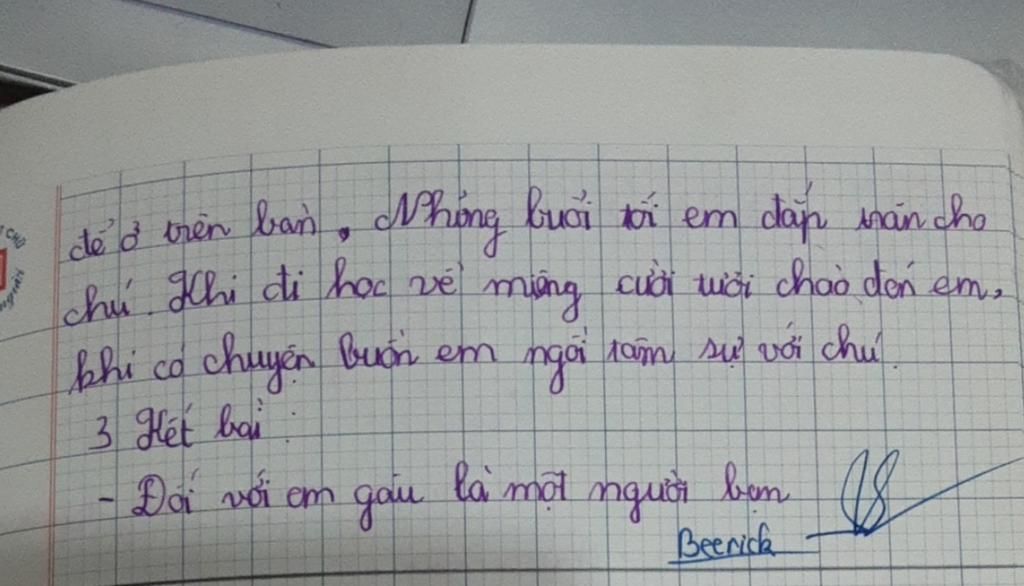 để ở trên bàn, Những buổi tối em đắp chăn cho
chú. Khi đi học về miệng cười tười chào đón em,
khi có chuyện buồn em ngồi tâm sự với chú.
3 Kết bài:
- Đối với em gấu là một người bạn
Beerick